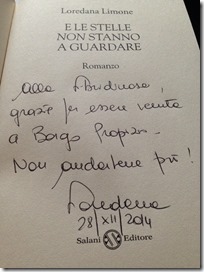 Loredana Limone
E LE STELLE
NON STANNO
A GUARDARE
Romanzo
Alla
grazie per essere venuta
a Borgo Propizio.
Non andartene più!
Loredana
28/XII/2014
Salani Editore